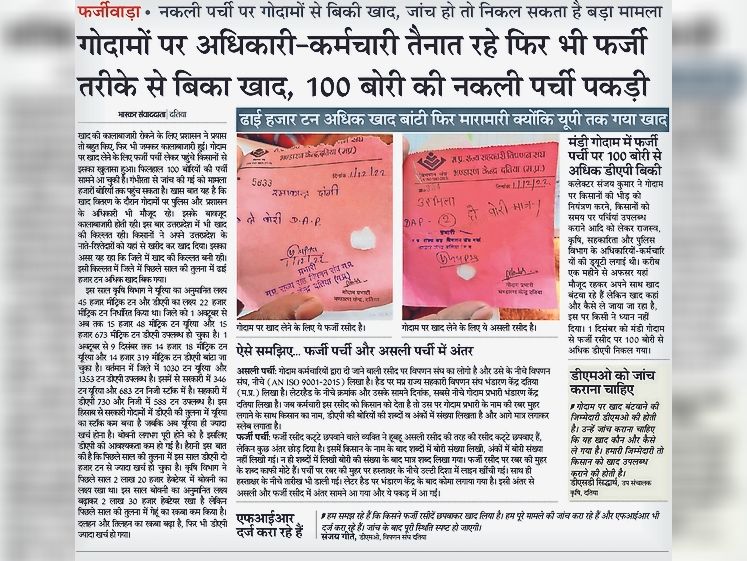 फर्जीवाड़ा • नकली पर्ची पर गोदामों से बिकी खाद, जांच हो तो निकल सकता है बड़ा मामला
गोदामों पर अधिकारी-कर्मचारी तैनात रहे फिर भी फर्जी
तरीके से बिका खाद, 100 बोरी की नकली पर्ची पकड़ी
भास्कर संवाददाता | दतिया
खाद की कालाबाजारी रोकने के लिए प्रशासन ने प्रयास
तो बहुत किए, फिर भी जमकर कालाबाजारी हुई। गोदाम
पर खाद लेने के लिए फर्जी पर्ची लेकर पहुंचे किसानों से
इसका खुलासा हुआ। फिलहाल 100 बोरियों की पर्ची
सामने आ चुकी है। गंभीरता से जांच की गई को मामला
हजारों बोरियों तक पहुंच सकता है। खास बात यह है कि
खाद वितरण के दौरान गोदामों पर पुलिस और प्रशासन
के अधिकारी भी मौजूद रहे। इसके बावजूद
कालाबाजारी होती रही। इस बार उत्तरप्रदेश में भी खाद
की किल्लत रही। किसानों ने अपने उत्तरप्रदेश के
नाते-रिश्तेदारों को यहां से खरीद कर खाद दिया। इसका
असर यह रहा कि जिले में खाद की किल्लत बनी रही।
इसी किल्लत में जिले में पिछले साल की तुलना में ढाई
हजार टन अधिक खाद बिक गया।
इस साल कृषि विभाग ने यूरिया का अनुमानित लक्ष्य
45 हजार मीट्रिक टन और डीएपी का लक्ष्य 22 हजार
मीट्रिक टन निर्धारित किया था। जिले को 1 अक्टूबर से
अब तक 15 हजार 48 मीट्रिक टन यूरिया और 15
हजार 673 मीट्रिक टन डीएपी उपलब्ध हो चुका है। 1
अक्टूबर से 9 दिसंबर तक 14 हजार 18 मीट्रिक टन
यूरिया और 14 हजार 319 मीट्रिक टन डीएपी बांटा जा
चुका है। वर्तमान में जिले में 1030 टन यूरिया और
1353 टन डीएपी उपलब्ध है। इसमें से सरकारी में 346
टन यूरिया और 683 टन निजी स्टॉक में है। सहकारी में
डीएपी 730 और निजी में 588 टन उपलब्ध है। इस
हिसाब से सरकारी गोदामों में डीएपी की तुलना में यूरिया
का स्टॉक कम बचा है जबकि अब यूरिया ही ज्यादा
खर्च होना है। बोवनी लगभग पूरी होने को है इसलिए
डीएपी की आवश्यकता कम हो गई है। हैरानी इस बात
की है कि पिछले साल की तुलना में इस साल डीएपी दो
हजार टन से ज्यादा खर्च हो चुका है। कृषि विभाग ने
पिछले साल 2 लाख 20 हजार हेक्टेयर में बोवनी का
लक्ष्य रखा था। इस साल बोवनी का अनुमानित लक्ष्य
बढ़ाकर 2 लाख 30 हजार हेक्टेयर रखा है लेकिन
पिछले साल की तुलना में गेहूं का रकबा कम किया है।
दलहन और तिलहन का रकबा बढ़ा है, फिर भी डीएपी
ज्यादा खर्च हो गया।
ढाई हजार टन अधिक खाद बांटी फिर मारामारी क्योंकि यूपी तक गया खाद
भण्डारण केन्द्र दतिया (म.प्र.)
5633
दिनांक 1/12/22
दो बोरी D.A.P.
1/12/22
प्रभारी
गोदाम प्रभारी
भण्डारण केन्द्र, दतिया
गोदाम पर खाद लेने के लिए ये फर्जी रसीद है।
म.प्र. राज्य सहकारी विपणन संघ
भण्डारण केन्द्र दतिया (म.प्र.)
दिनांक 1/12/22
DAP - (2) दो बोरी मात्र
प्रभारी
गोदाम प्रभारी
भण्डारण केन्द्र, दतिया
गोदाम पर खाद लेने के लिए ये असली रसीद है।
ऐसे समझिए... फर्जी पर्ची और असली पर्ची में अंतर
असली पर्ची: गोदाम कर्मचारियों द्वारा दी जाने वाली रसीद पर विपणन संघ का लोगो है और उसे के नीचे विपणन
संघ, नीचे (AN ISO 9001-2015) लिखा है। हैड पर मप्र राज्य सहकारी विपणन संघ भंडारण केंद्र दतिया
(म.प्र.) लिखा है। लेटरहैड के नीचे क्रमांक और उसके सामने दिनांक, सबसे नीचे गोदाम प्रभारी भंडारण केंद्र
दतिया लिखा है। जब कर्मचारी इस रसीद को किसान को देता है तो उस पर गोदाम प्रभारी के नाम की रबर मुहर
लगाने के साथ किसान का नाम, डीएपी की बोरियों की शब्दों व अंकों में संख्या लिखता है और आगे मात्र लगाकर
स्लेब लगाता है।
फर्जी पर्ची: फर्जी रसीद कट्टे छपवाने वाले व्यक्ति ने हूबहू असली रसीद की तरह की रसीद कट्टे छपवाए हैं,
लेकिन कुछ अंतर छोड़ दिया है। इसमें किसान के नाम के बाद शब्दों में बोरी संख्या लिखी, अंकों में बोरी संख्या
नहीं लिखी गई। न ही शब्दों में लिखी बोरी की संख्या के बाद मात्र शब्द लिखा गया। फर्जी रसीद पर रबर की मुहर
के शब्द काफी मोटे हैं। पर्ची पर रबर की मुहर पर हस्ताक्षर के नीचे उल्टी दिशा में लाइन खींची गई। साथ ही
हस्ताक्षर के नीचे तारीख भी डाली गई। लेटर हैड पर भंडारण केंद्र के बाद कोमा लगाया गया है। इसी अंतर से
असली और फर्जी रसीद में अंतर सामने आ गया और ये पकड़ में आ गई।
मंडी गोदाम में फर्जी
पर्ची पर 100 बोरी से
अधिक डीएपी बिकी
कलेक्टर संजय कुमार ने गोदाम
पर किसानों की भीड़ को
नियंत्रण करने, किसानों को
समय पर पर्चियां उपलब्ध
कराने आदि को लेकर राजस्व,
कृषि, सहकारिता और पुलिस
विभाग के अधिकारियों-कर्मचारि
यों की ड्यूटी लगाई थी। करीब
एक महीने से अफसर यहां
मौजूद रहकर अपने साथ खाद
बंटवा रहे हैं लेकिन खाद कहां
और कैसे ले जाया जा रहा है,
इस पर किसी ने ध्यान नहीं
दिया। 1 दिसंबर को मंडी गोदाम
पर फर्जी रसीद पर 100 बोरी से
अधिक डीएपी निकल गया।
डीएमओ को जांच
कराना चाहिए
गोदाम पर खाद बंटवाने की
जिम्मेदारी डीएमओ की होती
है। उन्हें जांच कराना चाहिए
कि यह खाद कौन और कैसे
ले गया है। हमारी जिम्मेदारी तो
किसान को खाद उपलब्ध
कराने की होती है।
डीएसडी सिद्धार्थ, उप संचालक
कृषि, दतिया
एफआईआर
दर्ज करा रहे हैं
हम समझ रहे हैं कि किसने फर्जी रसीदें छपवाकर खाद लिया है। हम पूरे मामले की जांच करा रहे हैं और एफआईआर भी
दर्ज करा रहे हैं। जांच के बाद पूरी स्थिति स्पष्ट हो जाएगी।
संजय गीते, डीएमओ, विपणन संघ दतिया